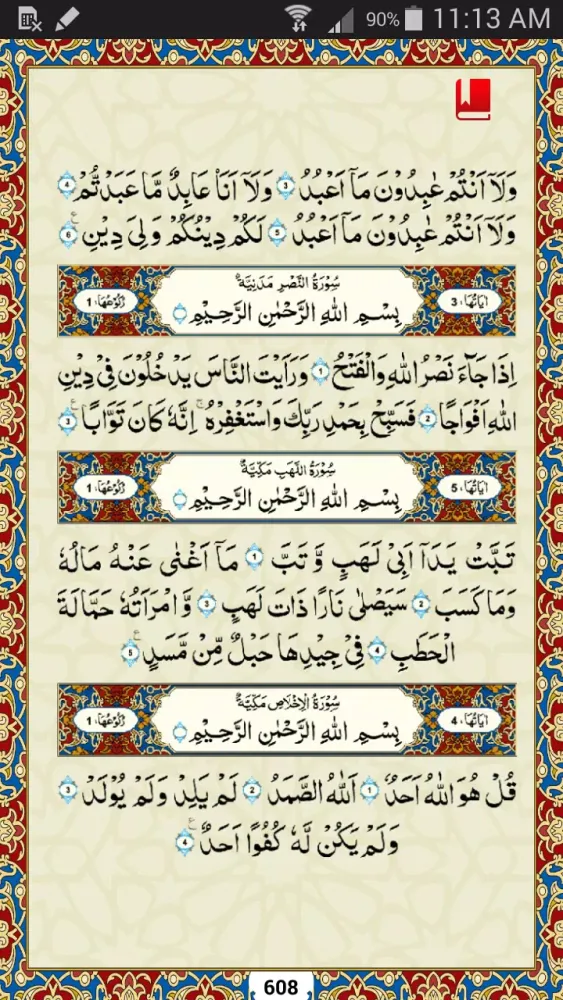 90% 11:13 AM
وَلَاۤ اَنْتُمْ عٰبِدُوْنَ مَاۤ اَعْبُدُ ۳ وَلَاۤ اَنَا عَابِدٌ مَّا عَبَدْتُّمْ ۴
وَلَاۤ اَنْتُمْ عٰبِدُوْنَ مَاۤ اَعْبُدُ ۵ لَكُمْ دِيْنُكُمْ وَلِيَ دِيْنِ ۶ ع
اٰيَاتُهَا: 3 سُوْرَةُ النَّصْرِ مَدَنِيَّةٌ رُكُوْعُهَا: 1
بِسْمِ اللّٰهِ الرَّحْمٰنِ الرَّحِيْمِ
اِذَا جَآءَ نَصْرُ اللّٰهِ وَالْفَتْحُ ۱ وَرَاَيْتَ النَّاسَ يَدْخُلُوْنَ فِيْ دِيْنِ
اللّٰهِ اَفْوَاجًا ۲ فَسَبِّحْ بِحَمْدِ رَبِّكَ وَاسْتَغْفِرْهُ ؕ اِنَّهٗ كَانَ تَوَّابًا ۳ ع
اٰيَاتُهَا: 5 سُوْرَةُ اللَّهَبِ مَكِّيَّةٌ رُكُوْعُهَا: 1
بِسْمِ اللّٰهِ الرَّحْمٰنِ الرَّحِيْمِ
تَبَّتْ يَدَاۤ اَبِيْ لَهَبٍ وَّتَبَّ ۱ مَاۤ اَغْنٰى عَنْهُ مَالُهٗ
وَمَا كَسَبَ ۲ سَيَصْلٰى نَارًا ذَاتَ لَهَبٍ ۳ وَّامْرَاَتُهٗ حَمَّالَةَ
الْحَطَبِ ۴ فِيْ جِيْدِهَا حَبْلٌ مِّنْ مَّسَدٍ ۵ ع
اٰيَاتُهَا: 4 سُوْرَةُ الْاِخْلَاصِ مَكِّيَّةٌ رُكُوْعُهَا: 1
بِسْمِ اللّٰهِ الرَّحْمٰنِ الرَّحِيْمِ
قُلْ هُوَ اللّٰهُ اَحَدٌ ۱ اَللّٰهُ الصَّمَدُ ۲ لَمْ يَلِدْ وَلَمْ يُوْلَدْ ۳
وَلَمْ يَكُنْ لَّهٗ كُفُوًا اَحَدٌ ۴ ع
608